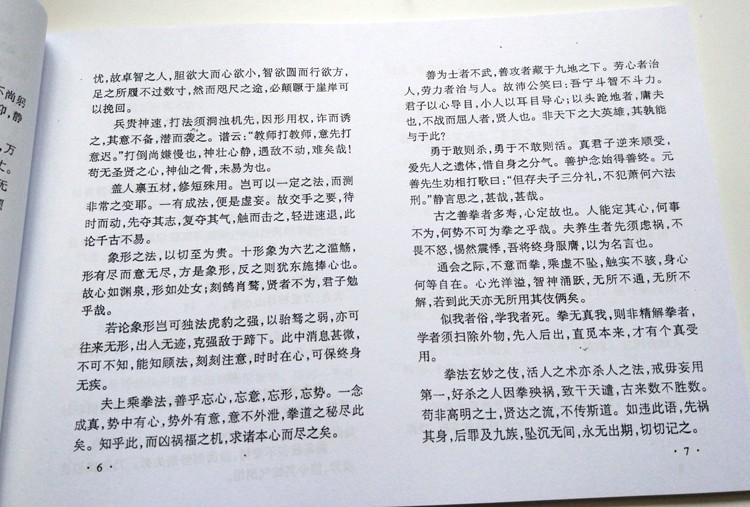 不尚躬
仰,静
万
无
忧,故卓智之人,胆欲大而心欲小,智欲圆而行欲方,
足之所履不过数寸,然而咫尺之途,必颠蹶于崖岸可
以挽回。
兵贵神速,打法须洞浊机先,因形用权,诈而诱
之,其意不备,潜而袭之。谱云:“教师打教师,意先打
意迟。”打倒尚嫌慢也,神壮心静,遇敌不动,难矣哉!
苟无圣贤之心,神仙之骨,未易为也。
盖人禀五材,修短殊用。岂可以一定之法,而测
非常之变耶。一有成法,便是虚妄。故交手之要,待
时而动,先夺其志,复夺其气,触而击之,轻进速退,此
论千古不易。
象形之法,以切至为贵。十形象为六艺之滥觞,
形有尽而意无尽,方是象形,反之则犹东施捧心也。
故心如渊泉,形如处女;刻鹄肖鹜,贤者不为,君子勉
乎哉。
若论象形岂可独法虎豹之强,以骀驽之弱,亦可
往来无形,出人无迹,克强敌于蹄下。此中消息甚微,
不可不知,能知顾法,刻刻注意,时时在心,可保终身
无疾。
夫上乘拳法,善乎忘心,忘意,忘形,忘势。一念
成真,势中有心,势外有意,意不外泄,拳道之秘尽此
矣。知乎此,而凶祸福之机,求诸本心而尽之矣。
·6·
善为士者不武,善攻者藏于九地之下。劳心者治
人,劳力者治与人。故沛公笑曰:吾宁斗智不斗力。
君子以心导目,小人以耳目导心;以头跄地者,庸夫
也,不战而屈人者,贤人也。非天下之大英雄,其孰能
与于此?
勇于敢则杀,勇于不敢则活。真君子逆来顺受,
爱先人之遗体,惜自身之分气。善护念始得善终。元
善先生劝相打歌曰:“但存夫子三分礼,不犯萧何六法
刑。”静言思之,甚哉,甚哉。
古之善拳者多寿,心定故也。人能定其心,何事
不为,何势不可为拳之乎哉。夫养生者先须虑祸,不
畏不怒,惕然震悸,吾将终身服膺,以为名言也。
通会之际,不意而拳,乘虚不坠,触实不骇,身心
何等自在。心光洋溢,智神涌跃,无所不通,无所不
解,若到此天亦无所用其伎俩矣。
似我者俗,学我者死。拳无真我,则非精解拳者,
学者须扫除外物,先人后出,直觅本来,才有个真受
用。
拳法玄妙之伎,活人之术亦杀人之法,戒毋妄用
第一,好杀之人因拳殃祸,致干天谴,古来数不胜数。
苟非高明之士,贤达之流,不传斯道。如违此语,先祸
其身,后罪及九族,坠沉无间,永无出期,切切记之。
·7·